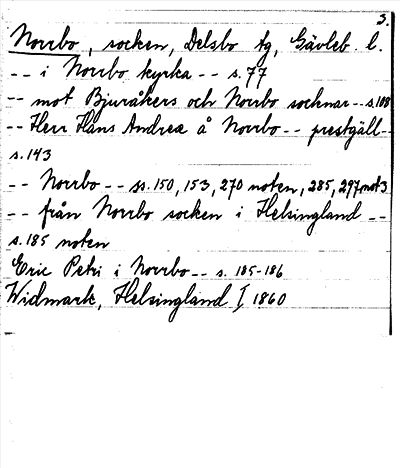 3.
Norrbo, socken, Delsbo tg, Gävleb. l.
-- i Norrbo kyrka -- s. 77
-- mot Bjuråkers och Norrbo socknar -- s. 108
-- Herr Hans Andreæ å Norrbo -- prestgäll --
s. 143
-- Norrbo -- ss. 150, 153, 270 noten, 285, 297 not 3
-- från Norrbo socken i Helsingland --
s. 185 noten
Eric Petri i Norrbo -- s. 185-186
Widmark, Helsingland I 1860